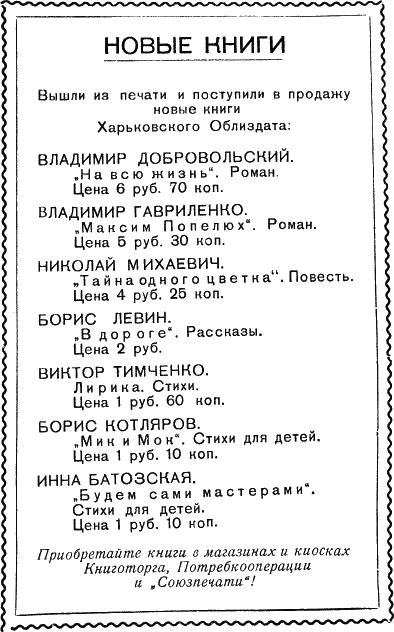 НОВЫЕ КНИГИ
Вышли из печати и поступили в продажу
новые книги
Харьковского Облиздата:
ВЛАДИМИР ДОБРОВОЛЬСКИЙ.
„На всю жизнь“. Роман.
Цена 6 руб. 70 коп.
ВЛАДИМИР ГАВРИЛЕНКО.
„Максим Попелюх“. Роман.
Цена 5 руб. 30 коп.
НИКОЛАЙ МИХАЕВИЧ.
„Тайна одного цветка“. Повесть.
Цена 4 руб. 25 коп.
БОРИС ЛЕВИН.
„В дороге“. Рассказы.
Цена 2 руб.
ВИКТОР ТИМЧЕНКО.
Лирика. Стихи.
Цена 1 руб. 60 коп.
БОРИС КОТЛЯРОВ.
„Мик и Мок“. Стихи для детей.
Цена 1 руб. 10 коп.
ИННА БАТОЗСКАЯ.
„Будем сами мастерами“.
Стихи для детей.
Цена 1 руб. 10 коп.
Приобретайте книги в магазинах и киосках
Книготорга, Потребкооперации
и „Союзпечати“!